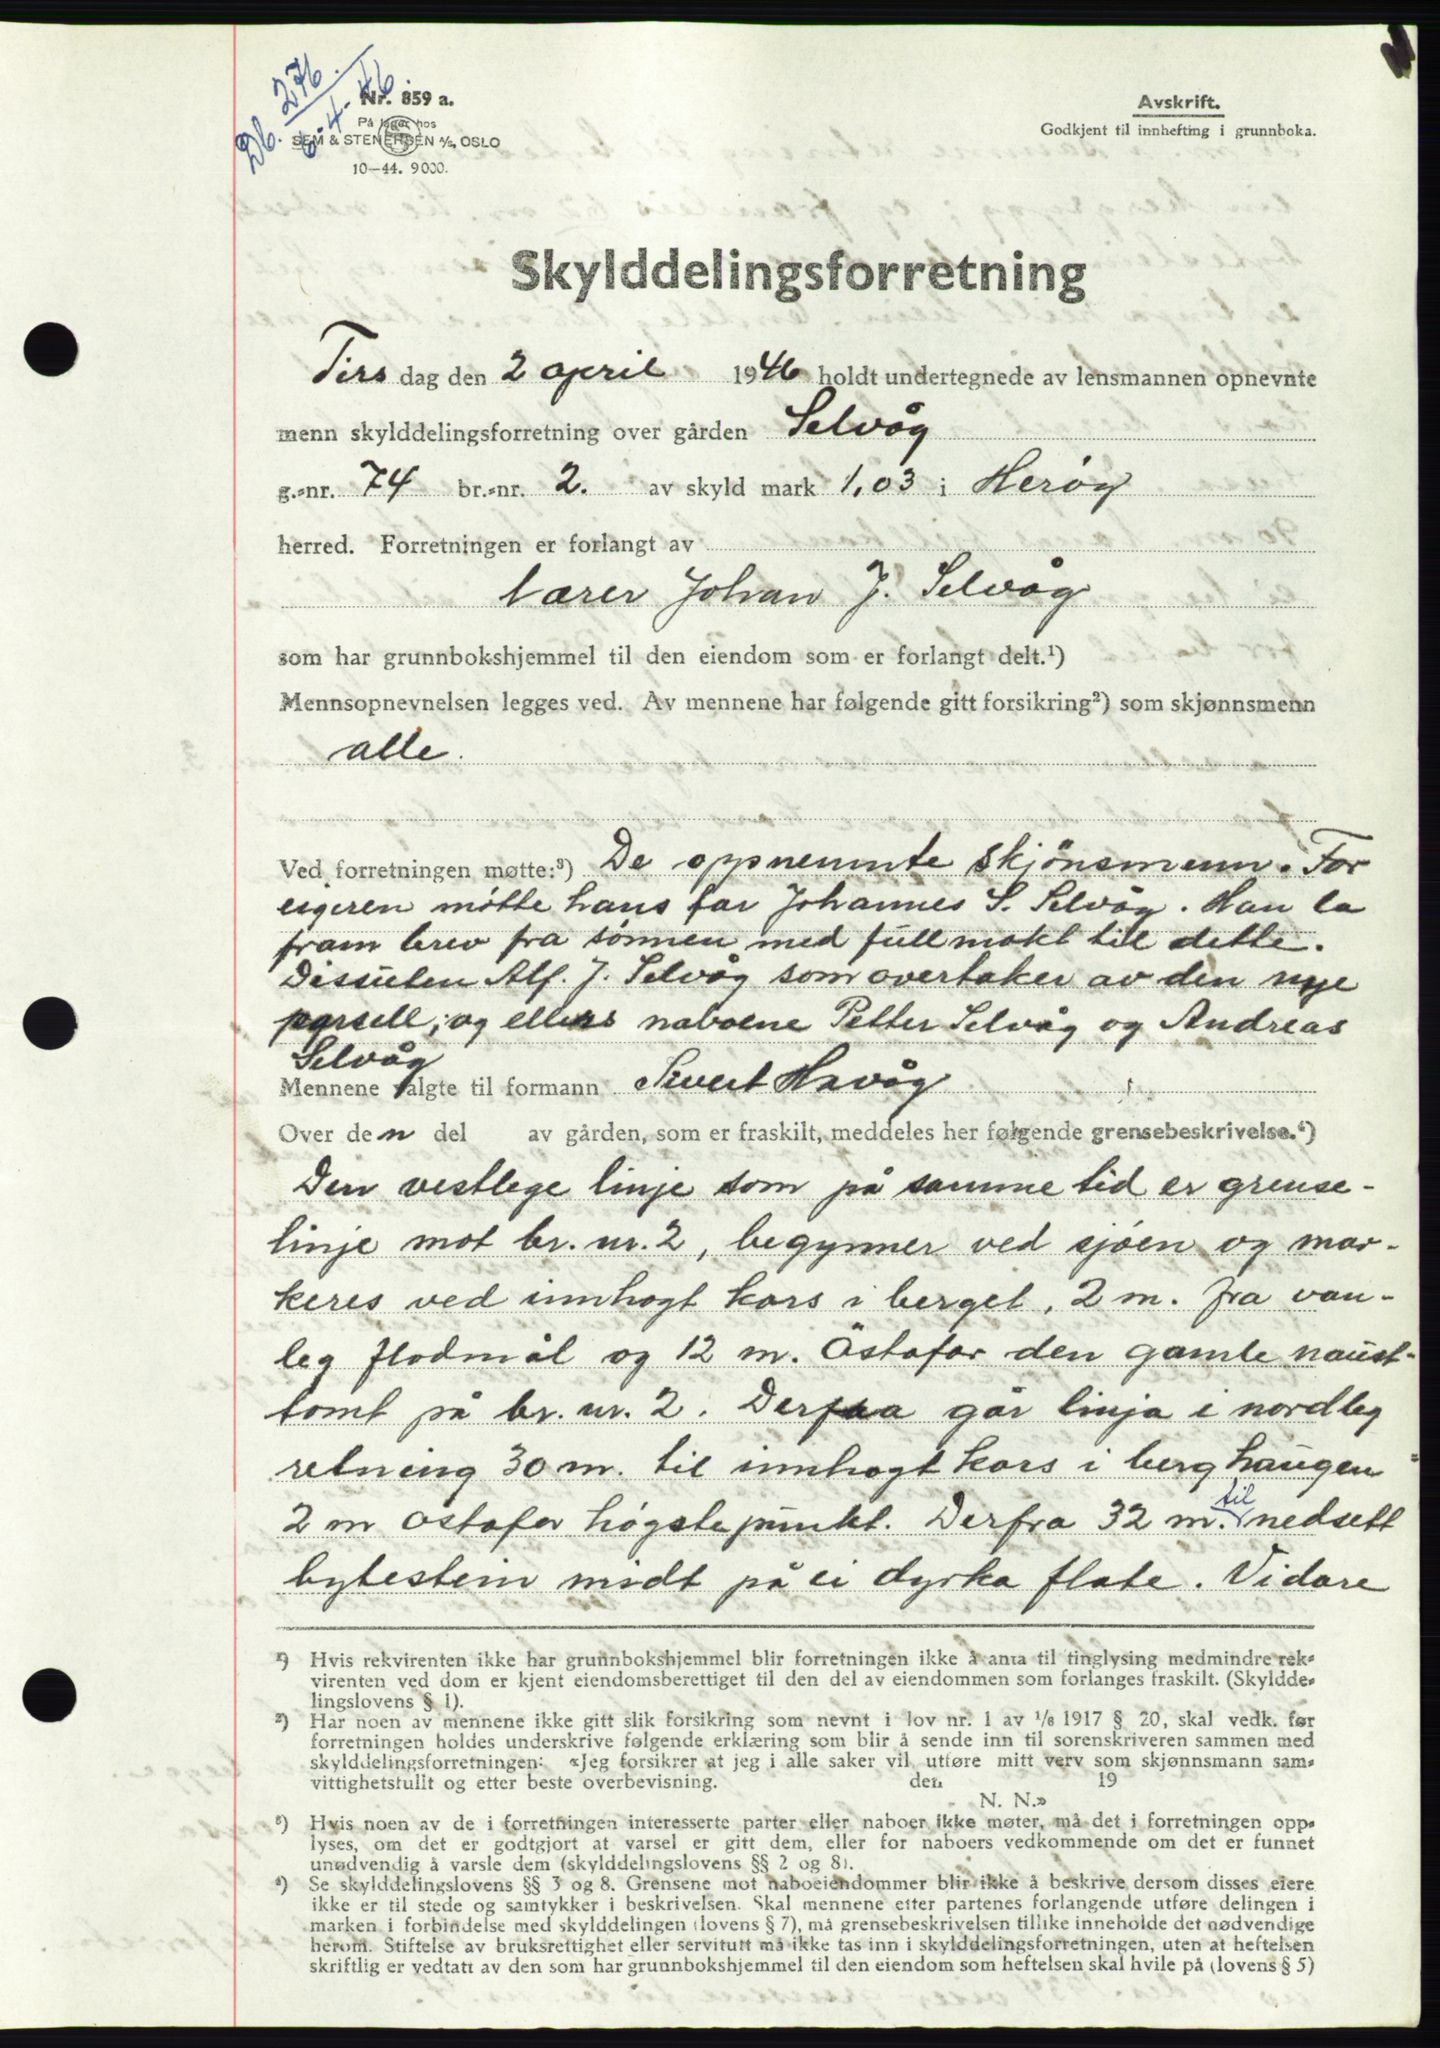 Db. 276.
6-4-46.
Nr. 859 a.
På lager hos
SEM & STENERSEN A/S, OSLO
10-44. 9000.
Avskrift.
Godkjent til innhefting i grunnboka.
Skylddelingsforretning
Tirs dag den 2 april 1946 holdt undertegnede av lensmannen opnevnte
menn skylddelingsforretning over gården Selvåg
g.-nr. 74 br.-nr. 2. av skyld mark 1,03 i Herøy
herred. Forretningen er forlangt av
lærer Johan J. Selvåg
som har grunnbokshjemmel til den eiendom som er forlangt delt.¹)
Mennsopnevnelsen legges ved. Av mennene har følgende gitt forsikring²) som skjønnsmenn
alle.
Ved forretningen møtte:³) De oppnemnte skjönsmenn. For
eigeren møtte hans far Johannes S. Selvåg. Han la
fram brev fra sønnen med fullmakt til dette.
Dessuten Alf. J. Selvåg som overtaker av den nye
parsell, og ellers naboene Petter Selvåg og Andreas
Selvåg
Mennene valgte til formann Sivert Havåg
Over den del av gården, som er fraskilt, meddeles her følgende grensebeskrivelse.⁴)
Den vestlege linje som på samme tid er grense-
linje mot br. nr. 2, begynner ved sjøen og mar-
keres ved innhogt kors i berget, 2 m. fra van-
leg flodmål og 12 m. östafor den gamle naust-
tomt på br. nr. 2. Derfra går linja i nordleg
retning 30 m. til innhogt kors i berghaugen
2 m östafor högste punkt. Derfra 32 m. til nedsett
bytestein midt på ei dyrka flate. Vidare
¹) Hvis rekvirenten ikke har grunnbokshjemmel blir forretningen ikke å anta til tinglysing medmindre rek-
virenten ved dom er kjent eiendomsberettiget til den del av eiendommen som forlanges fraskilt. (Skyldde-
lingslovens § 1).
²) Har noen av mennene ikke gitt slik forsikring som nevnt i lov nr. 1 av 1/6 1917 § 20, skal vedk. før
forretningen holdes underskrive følgende erklæring som blir å sende inn til sorenskriveren sammen med
skylddelingsforretningen: «Jeg forsikrer at jeg i alle saker vil utføre mitt verv som skjønnsmann sam-
vittighetsfullt og etter beste overbevisning. den 19
N. N.»
³) Hvis noen av de i forretningen interesserte parter eller naboer ikke møter, må det i forretningen opp-
lyses, om det er godtgjort at varsel er gitt dem, eller for naboers vedkommende om det er funnet
unødvendig å varsle dem (skylddelingslovens §§ 2 og 8).
⁴) Se skylddelingslovens §§ 3 og 8. Grensene mot naboeiendommer blir ikke å beskrive dersom disses eiere
ikke er til stede og samtykker i beskrivelsen. Skal mennene etter partenes forlangende utføre delingen i
marken i forbindelse med skylddelingen (lovens § 7), må grensebeskrivelsen tillike inneholde det nødvendige
herom. Stiftelse av bruksrettighet eller servitutt må ikke tas inn i skylddelingsforretningen, uten at heftelsen
skriftlig er vedtatt av den som har grunnbokshjemmel til den eiendom som heftelsen skal hvile på (lovens § 5)